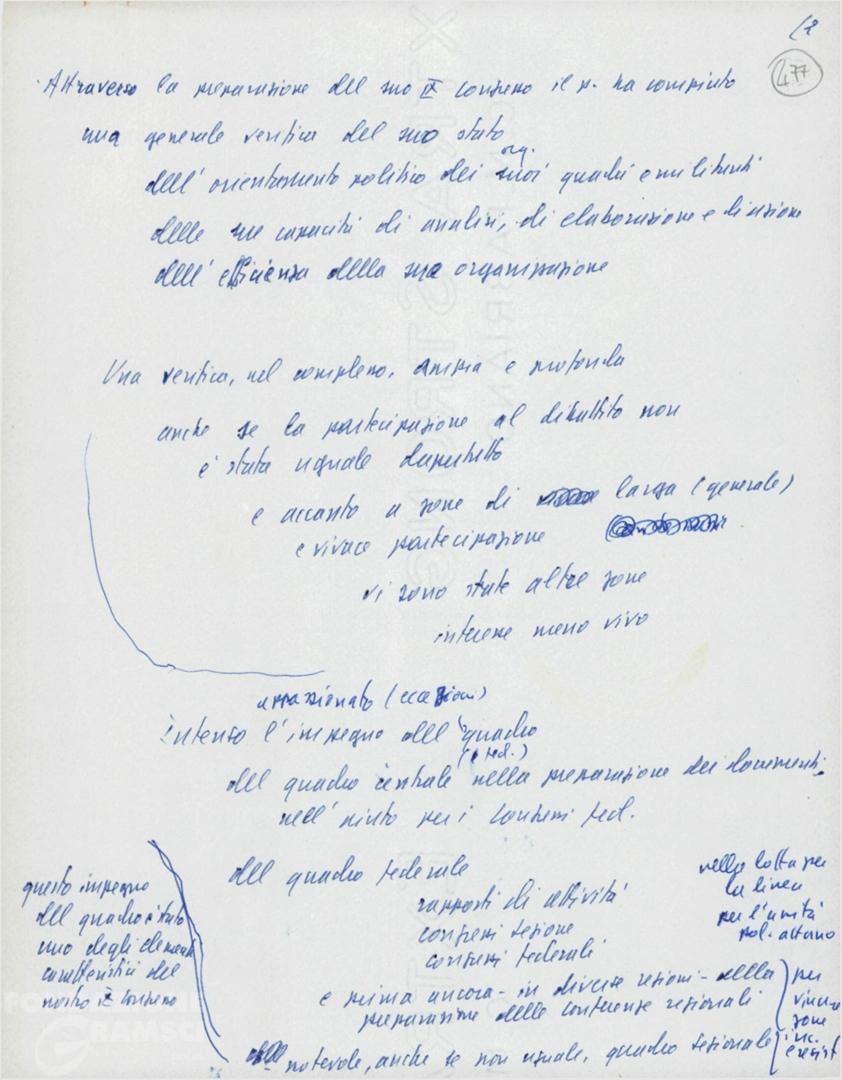 (2
477
Attraverso la preparazione del suo IX congresso il p. ha compiuto
una generale verifica del suo stato
org.
dell'orientamento politico dei suoi quadri e militanti
delle sue capacità di analisi, di elaborazione e di azione
dell'efficienza della sua organizzazione
Una verifica, nel complesso, ampia e profonda
anche se la partecipazione al dibattito non
è stata uguale dapertutto
e accanto a zone di larga (generale)
e vivace partecipazione
vi sono state altre zone
interesse meno vivo
appassionato (eccezioni)
Intenso l'impegno del quadro
del quadro centrale nella preparazione dei documenti
nell'aiuto per i congressi fed.
del quadro federale
rapporti di attività
congressi sezione
congressi federali
e prima ancora - in diverse regioni - della
preparazione delle conferenze regionali
notevole, anche se non uguale, quadro sezionale
nella lotta per
la linea
per l'unità
pol. attorno
per
vincere
zone
inc.
e resist
questo impegno
del quadro è stato
uno degli elementi
caratteristici del
nostro IX congresso
FONDAZIONE
GRAMSCI